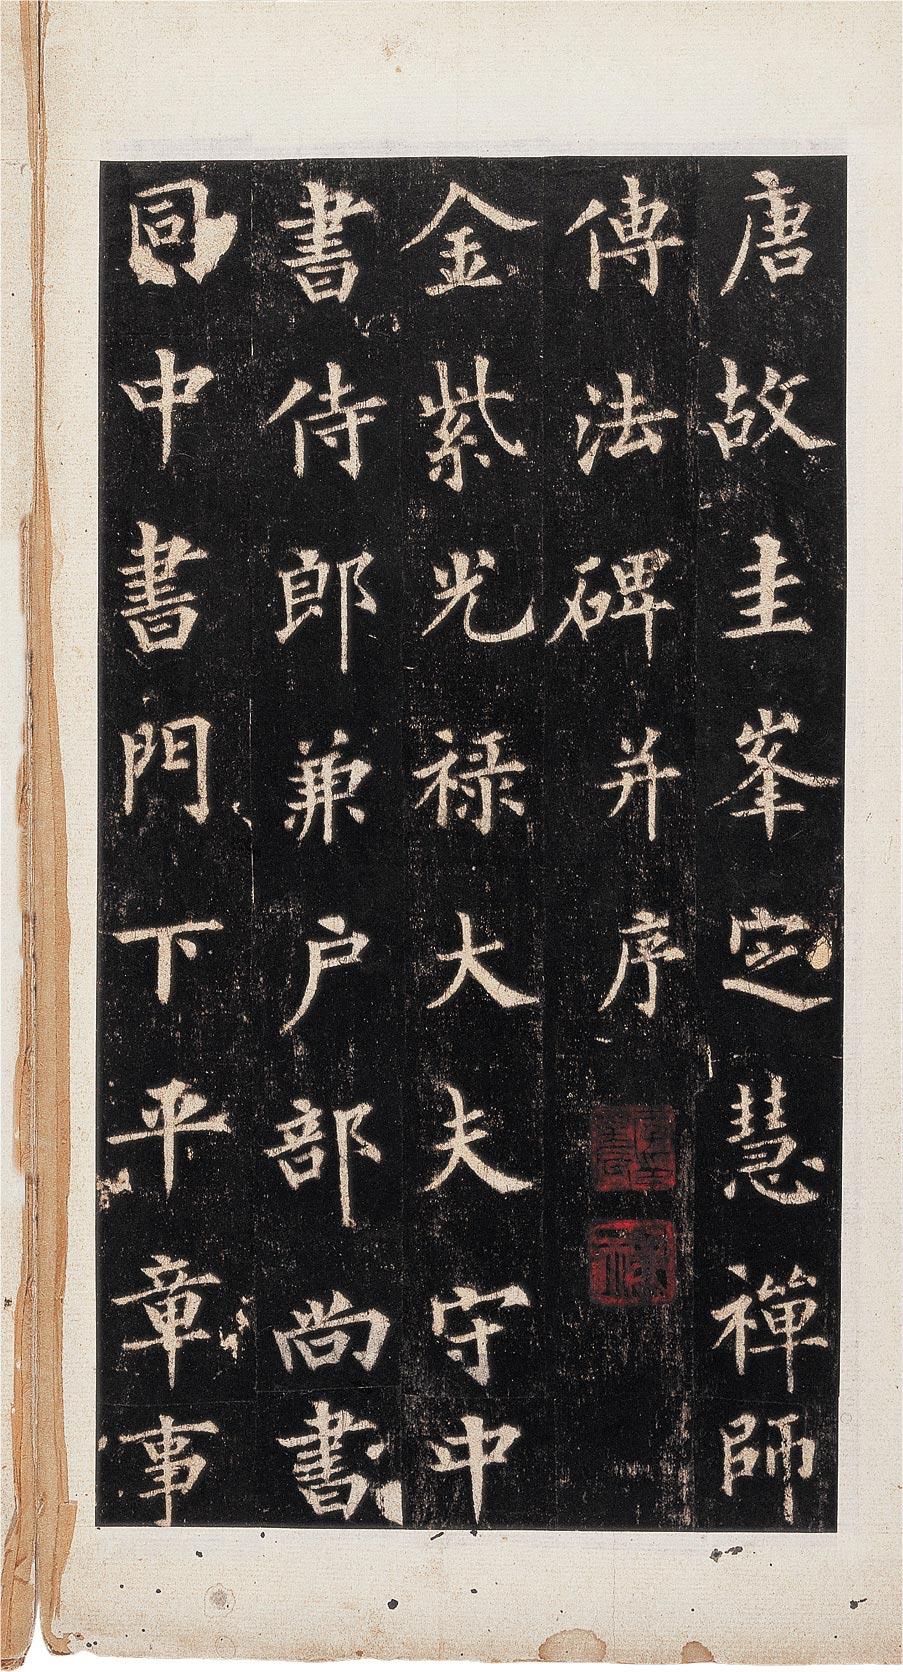 唐故圭峯定慧禪師
傳法碑并序
金紫光祿大夫守中
書侍郎兼户部尚書
同中書門下平章事